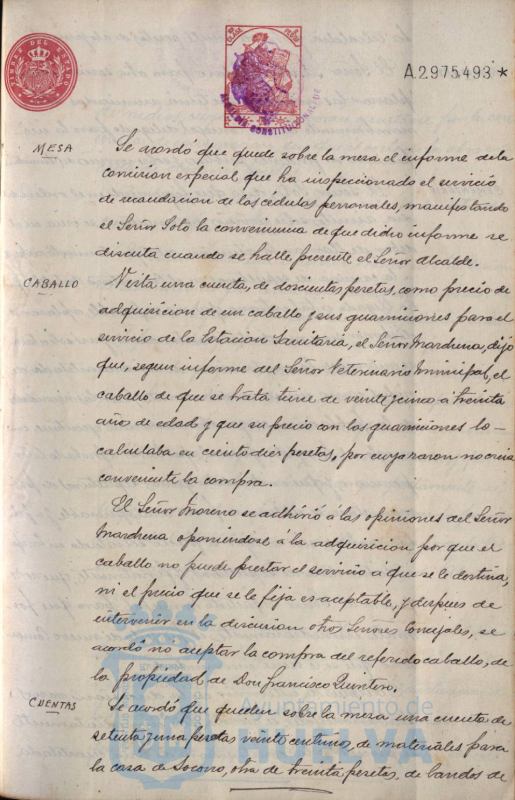 A.2975.493 *
MESA
Se acordó que quede sobre la mesa el informe de la
comision especial que ha inspeccionado el servicio
de recaudacion de las cédulas personales, manifestando
el Señor Soto la conveniencia de que dicho informe se
discuta cuando se halle presente el Señor Alcalde.
CABALLO
Vista una cuenta, de doscientas pesetas, como precio de
adquisicion de un caballo y sus guarniciones para el
servicio de la Estacion Sanitaria, el Señor Marchena, dijo
que, segun informe del Señor Veterinario Municipal, el
caballo de que se trata tiene de veinte y cinco á treinta
año de edad y que su precio con las guarniciones lo
calculaba en ciento diez pesetas, por cuya razon no creia
conveniente la compra.
El Señor Moreno se adhirió á las opiniones del Señor
Marchena oponiendose á la adquisicion por que el
caballo no puede prestar el servicio á que se le destina,
ni el precio que se le fija es aceptable, y despues de
intervenir en la discusion otros Señores Concejales, se
acordó no aceptar la compra del referido caballo, de
la propiedad de Don Francisco Quintero.
CUENTAS
Se acordó que queden sobre la mesa una cuenta de
setenta y una pesetas veinte centimos, de materiales para
la casa de Socorro, otra de treinta pesetas, de bandos de
Ayuntamiento de
HUELVA